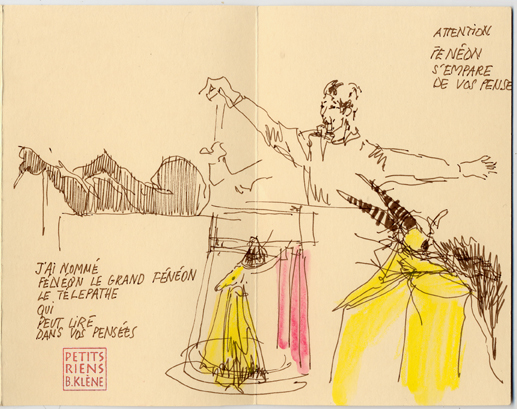 ATTENTION
FÉNÉON
S'EMPARE
DE VOS PENSE
J'AI NOMMÉ
FÉNÉON LE GRAND FÉNÉON
LE TÉLÉPATHE
QUI
PEUT LIRE
DANS VOS PENSÉES
PETITS
RIENS
B.KLÈNE